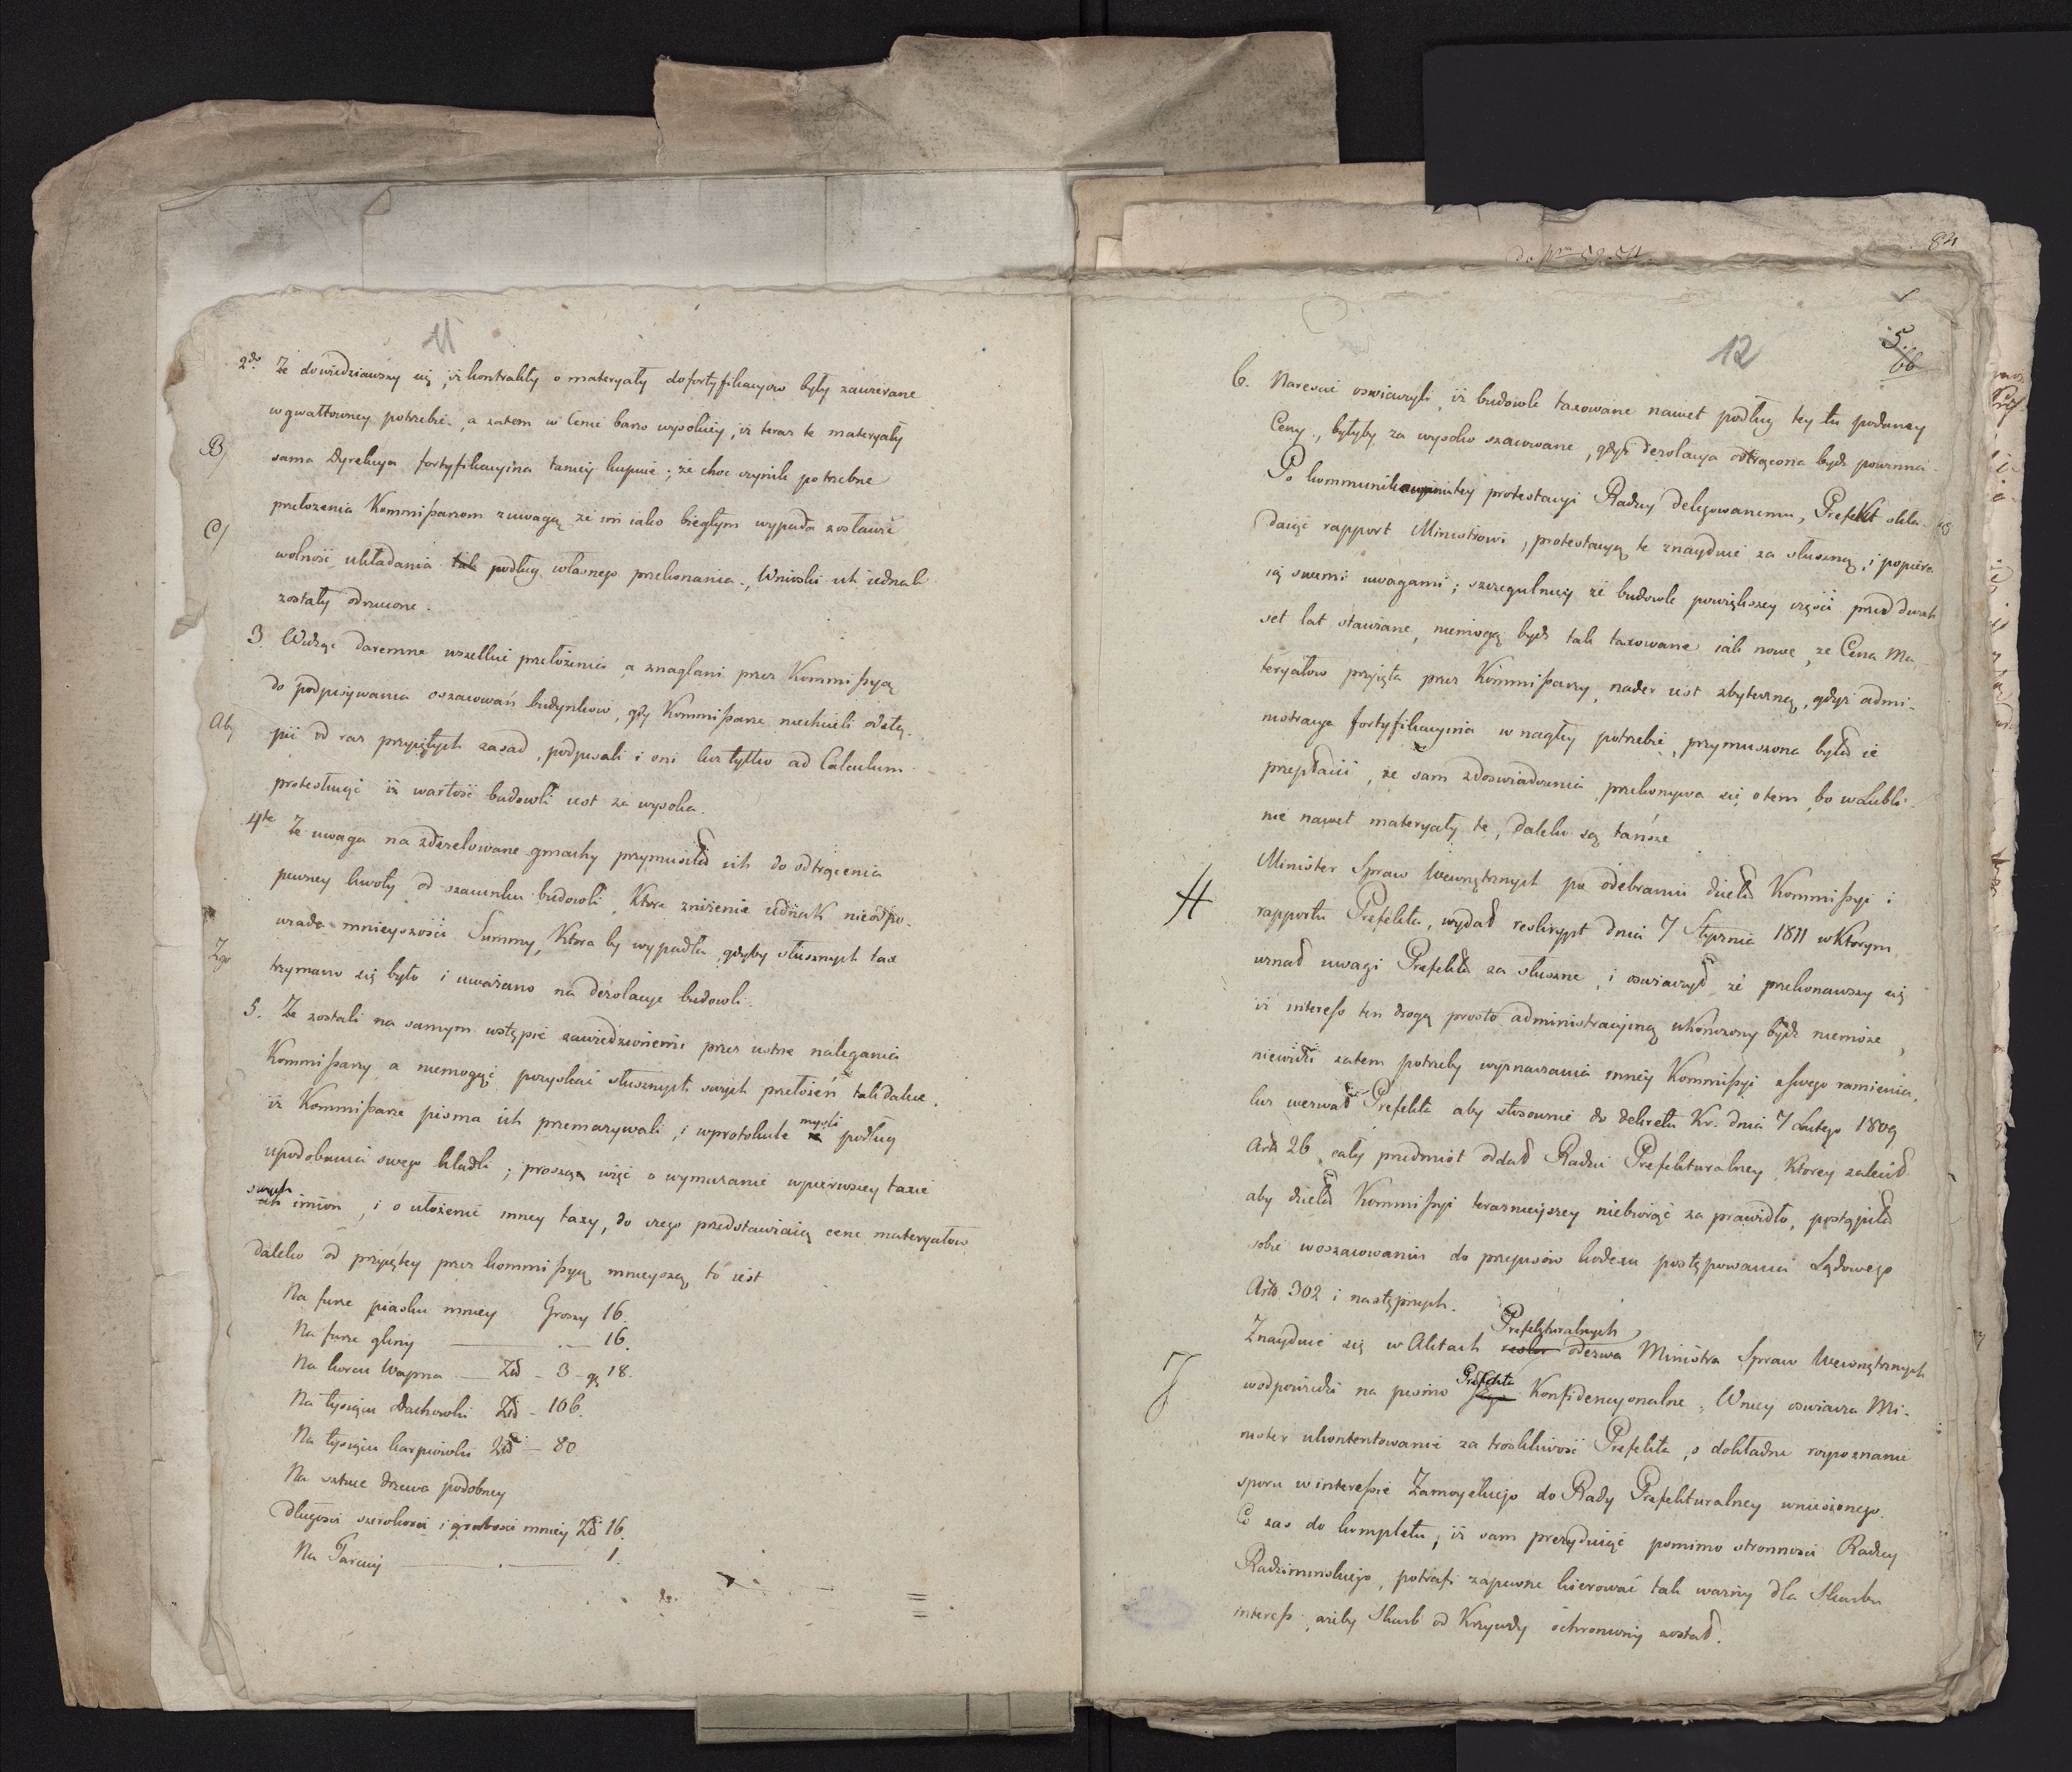 11
2do Że dowiedziawszy się, iż kontrakty o materyały do fortyfikacyow były zawierane
w gwałtowney potrzebie, a zatem w Cenie barzo wysokiey, iż teraz te materyały
B) sama Dyrekcya fortyfikacyina taniey kupuie; że choć czynili potrzebne
przełożenia Kommißarzom z uwagą że im iako biegłym wypada zostawić
C) wolność układania tak podług własnego przekonania, Wnioski ich iednak
zostały odrzucone.
3. Widząc daremne wszelkie przełożenia, a znagłani przez Kommißyą
do podpisywania oszacowań budynkow, gdy Kommißarze niechcieli odstą-
Ab) pić od raz przyiętych zasad, podpisali i oni lecz tylko ad Calculum
protestuiąc iż wartość budowli iest za wysoka.
4te Że uwaga na zdezelowane gmachy przymusiła ich do odtrącenia
pewney kwoty od szacunku budowli, Które zniżenie iednak nieodpo-
wiada mnieyszości Summy, Która by wypadła, gdyby słusznych tax
Zgo trzymano się było i uważano na dezolacye budowli.
5. Że zostali na samym wstępie zawiedzionemi przez ustne nalegania
Kommißarzy a niemogąc pozyskać słusznych swych przełożeń tak dalece,
iż Kommißarze pisma ich przemazywali, i w protokule myśli podług
upodobania swego kładli; proszą więc o wymazanie w pierwszey taxie
swych ich imion, i o ułożenie inney taxy, do czego przedstawiaią cene materyałow
daleko od przyiętey przez kommißyą mnieyszą, to iest
Na furze piasku mniey Groszy 16.
Na furze gliny — 16.
Na korcu Wapna — Zł — 3 — gr 18.
Na tysiącu Dachowki Zł — 106.
Na tysiącu karpiowki Zł — 80
Na sztuce drzewa podobney
długości szerokości i grubości mniey Zł 16.
Na Tarcicy — 1.
do Nrm 52.54.
84
12
5.
66
6. Nareście oswiadczyli, iż budowle taxowane nawet podług tey tu podaney
Ceny, byłyby za wysoko szacowane, gdyż dezolacya odtrącona bydź powinna.
Po kommunikacyi tey protestacyi Radzcy delegowanemu, Prefekt skła-
daiąc rapport Ministrowi, protestacyą te znayduie za słuszną, i popiera
ią swemi uwagami; szczegulniey że budowle powiększey części przed dwuch
set lat stawiane, niemogą bydź tak taxowane iak nowe, że Cena Ma-
teryałow przyięta przez Kommißarzy, nader iest zbyteczną, gdyż admi-
nistracya fortyfikacyina w nagłey potrzebie, przymuszona była ie
przepłacić, że sam z doswiadczenia przekonywa się o tem, bo w Lubli-
nie nawet materyały te, daleko są tańsze
H Minister Spraw Wewnętrznych po odebraniu dzieła Kommißyi i
rapportu Prefekta, wydał reskrypt dnia 7 Stycznia 1811 w Ktorym
uznał uwagi Prefekta za słuszne, i oswiadczył że przekonawszy się
iż intereß ten drogą prosto administracyiną ukończony bydź niemoże,
niewidzi zatem potrzeby wyznaczania inney Kommißyi z swego ramienia,
lecz wezwał Prefekta aby stosownie do dekretu Kr. dnia 7 Lutego 1809
Art 26 cały przedmiot oddał Radzie Prefekturalney, Ktorey zalecił
aby dzieła Kommißyi teraznieyszey niebiorąc za prawidło, postąpiła
sobie w oszacowaniu do przepisow kodexu postępowania Sądowego
Art 302 i następnych.
J Znayduie się w Aktach Prefekturalnych odezwa Ministra Spraw Wewnętrznych
w odpowiedzi na pismo Prefekta Konfidencyonalne, W niey oswiadcza Mi-
nister ukontentowanie za troskliwość Prefekta, o dokładne rozpoznanie
sporu w intereßie Zamoyskiego do Rady Prefekturalney wniesionego.
Co zas do kompletu, iż sam prezyduiąc pomimo stronności Radzcy
Radziminskiego, potrafi zapewne kierować tak ważny dla Skarbu
intereß, ażeby Skarb od Krzywdy ochroniony został.